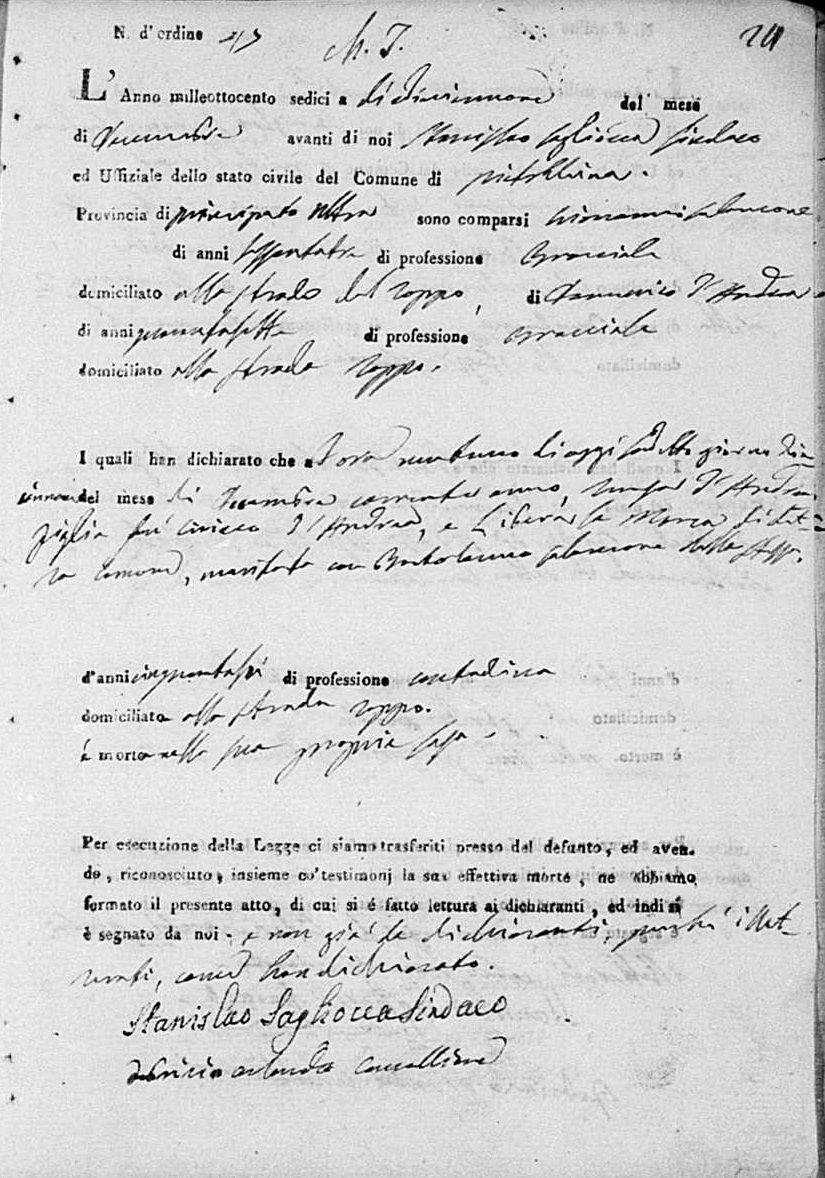 N. d'ordine 47 M. T. 24
L'Anno milleottocento sedici a di diciannove del mese
di Decembre avanti di noi Stanislao Sagliocca Sindaco
ed Uffiziale dello stato civile del Comune di pietralcina.
Provincia di principato Ultra sono comparsi Giovanni
di anni sessantatre di professione Bracciale
domiciliato alla strada del zoppo, di Domenico d'Andrea
di anni quarantasette di professione Bracciale
domiciliato alla strada zoppo.
I quali han dichiarato che a l'ora ventuno di oggi sudetto giorno dic-
iannove del mese di Decembre corrente anno, d'Andrea
figlia fu d'Andrea, e Libera la Marca di det-
to comune, maritata con Bartolomeo dello stesso.
d'anni cinquantasei di professione contadina
domiciliata alla strada zoppo.
é morta nella sua propria casa.
Per esecuzione della Legge ci siamo trasferiti presso del defunto, ed aven.
do, riconosciuto, insieme co'testimonj la sua effettiva morte, ne abbiamo
formato il presente atto, di cui si é fatto lettura ai dichiaranti, ed indi si
è segnato da noi e non già da dichiaranti, perché illet-
terati, come han dichiarato.
Stanislao Sagliocca Sindaco
orlando cancelliere